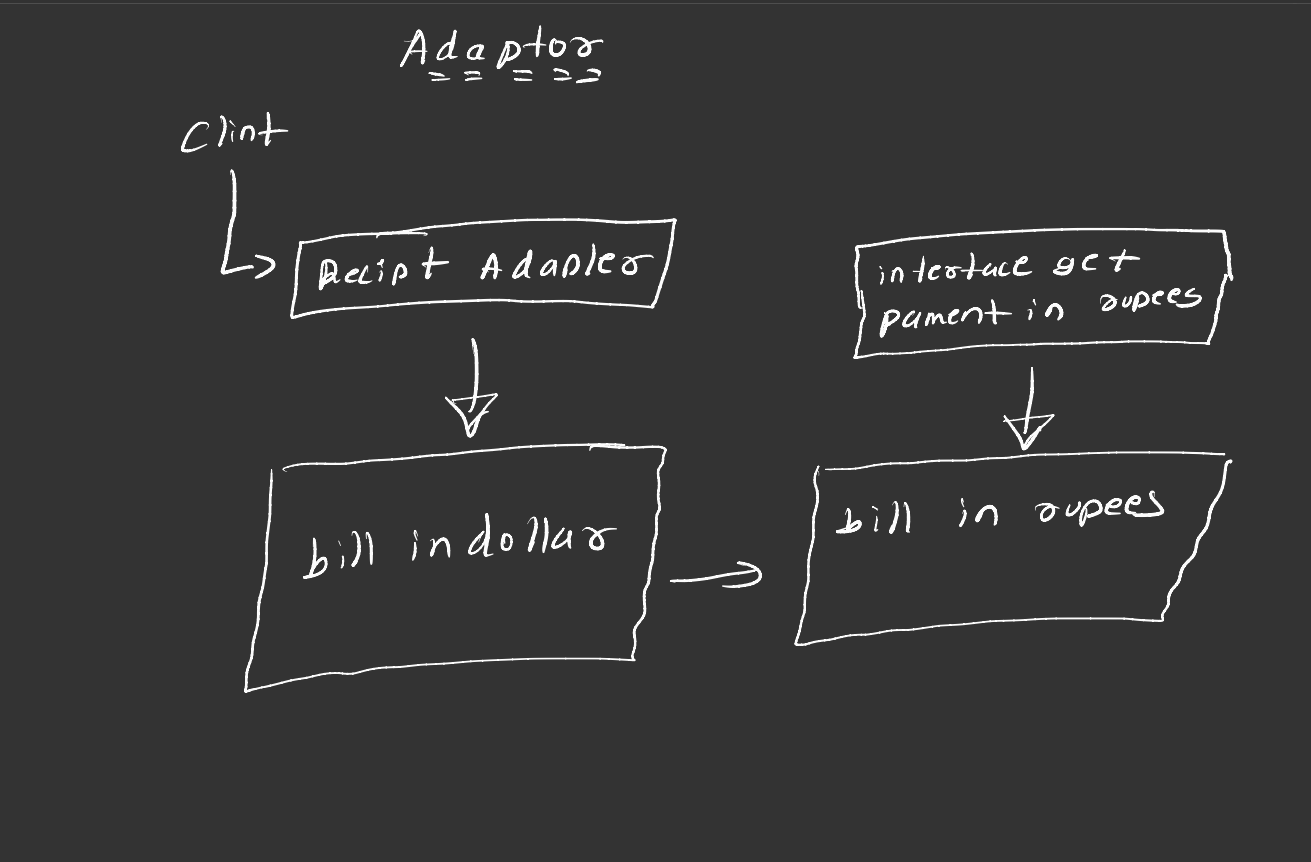 Adaptor
Clint
Recipt Adapter
interface get
pament in rupees
bill in dollar
bill in rupees